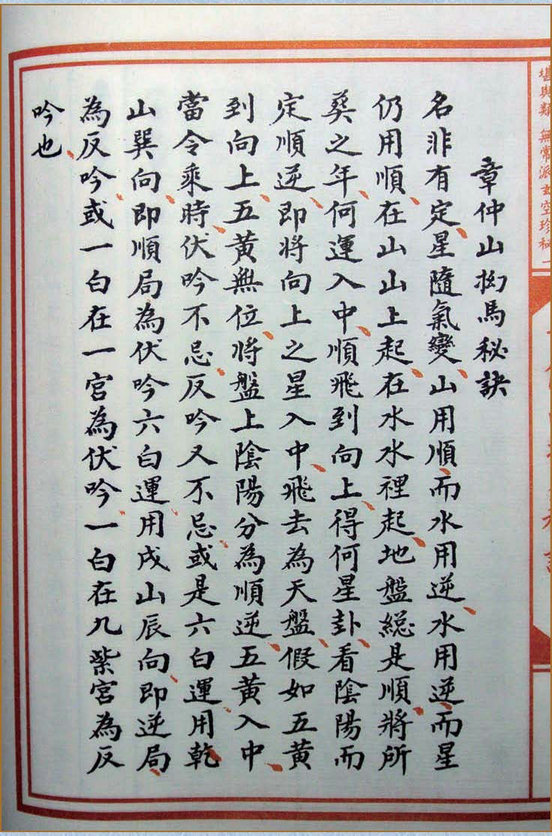 堪輿類 無常派玄空珍秘
章仲山抝馬秘訣
名非有定星隨氣變山用順而水用逆水用逆而星
仍用順在山山上起在水水裡起地盤総是順將所
葵之年何運入中順飛到向上得何星卦看陰陽而
定順逆即將向上之星入中飛去為天盤假如五黃
到向上五黃無位將盤上陰陽分為順逆五黃入中
當令乘時伏吟不忌反吟又不忌或是六白運用乾
山巽向即順局為伏吟六白運用戌山辰向即逆局
為反吟或一白在一宮為伏吟一白在九紫宮為反
吟也